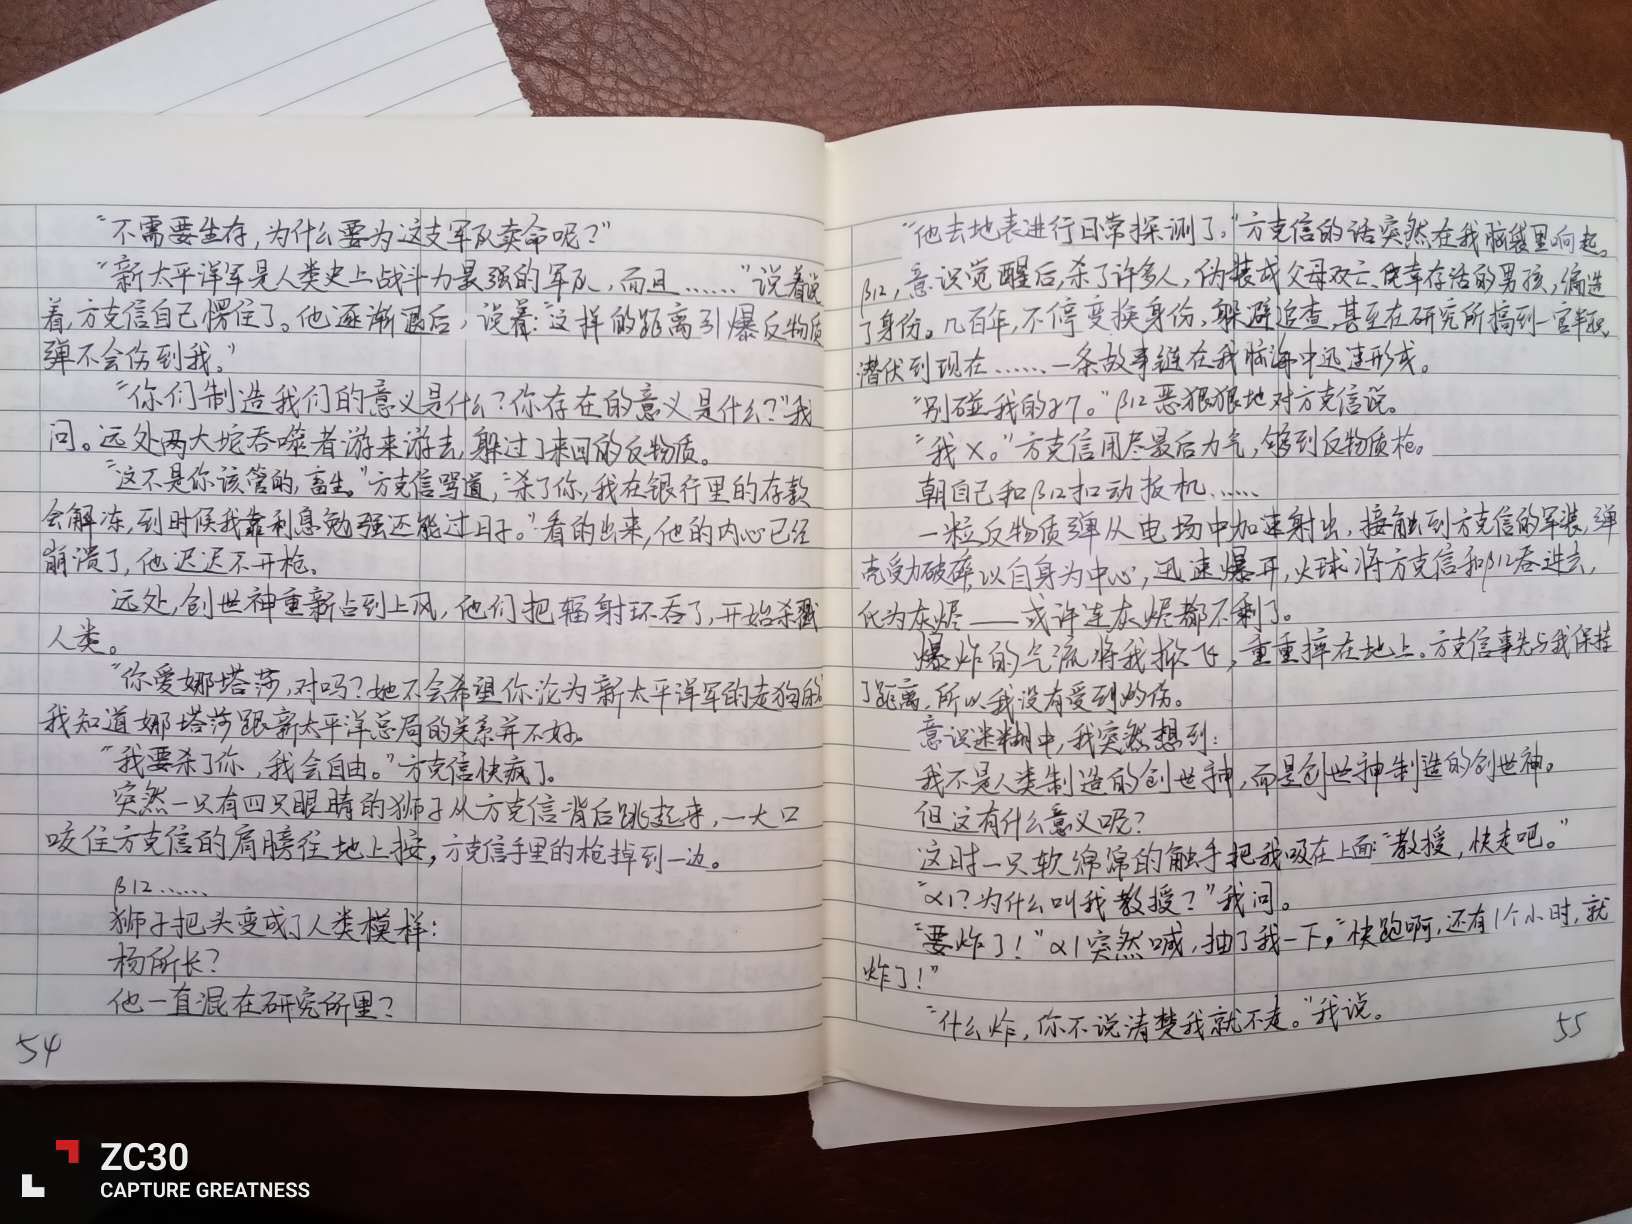 “不需要生存，为什么要为这支军队卖命呢？”
“新太平洋军是人类史上战斗力最强的军队，而且……”说着说
着，方克信自己愣住了。他逐渐退后，说着：“这样的距离引爆反物质
弹不会伤到我。”
“你们制造我们的意义是什么？你存在的意义是什么？”我
问。远处两大坨吞噬者游来游去，躲过了来回的反物质。
“这不是你该管的，畜生。”方克信骂道，“杀了你，我在银行里的存款
会解冻，到时候我靠利息勉强还能过日子。”看的出来，他的内心已经
崩溃了，他迟迟不开枪。
远处，创世神重新占到上风，他们把辐射环吞了，开始杀戮
人类。
“你爱娜塔莎，对吗？她不会希望你沦为新太平洋军的走狗的。
我知道娜塔莎跟新太平洋总局的关系并不好。
“我要杀了你，我会自由。”方克信快疯了。
突然一只有四只眼睛的狮子从方克信背后跳起来，一大口
咬住方克信的肩膀往地上按，方克信手里的枪掉到一边。
β12……
狮子把头变成了人类模样：
杨所长？
他一直混在研究所里？
54
“他去地表进行日常探测了。”方克信的话突然在我脑袋里响起。
β12，意识觉醒后，杀了许多人，伪装成父母双亡、侥幸存活的男孩，编造
了身份。几百年，不停变换身份，躲避追查，甚至在研究所搞到一官半职，
潜伏到现在……一条故事链在我脑海中迅速形成。
“别碰我的27。”β12恶狠狠地对方克信说。
“我X。”方克信用尽最后力气，够到反物质枪。
朝自己和β12扣动扳机……
一粒反物质弹从电场中加速射出，接触到方克信的军装，弹
壳受力破碎，以自身为中心，迅速爆开，火球将方克信和β12吞进去，
化为灰烬——或许连灰烬都不剩了。
爆炸的气流将我掀飞，重重摔在地上。方克信事先与我保持
了距离，所以我没有受到灼伤。
意识迷糊中，我突然想到：
我不是人类制造的创世神，而是创世神制造的创世神。
但这有什么意义呢？
这时一只软绵绵的触手把我吸在上面：“教授，快走吧。”
“α1？为什么叫我教授？”我问。
“要炸了！”α1突然喊，抽了我一下，“快跑啊，还有1个小时，就
炸了！”
“什么炸，你不说清楚我就不走。”我说。
55
ZC30
CAPTURE GREATNESS